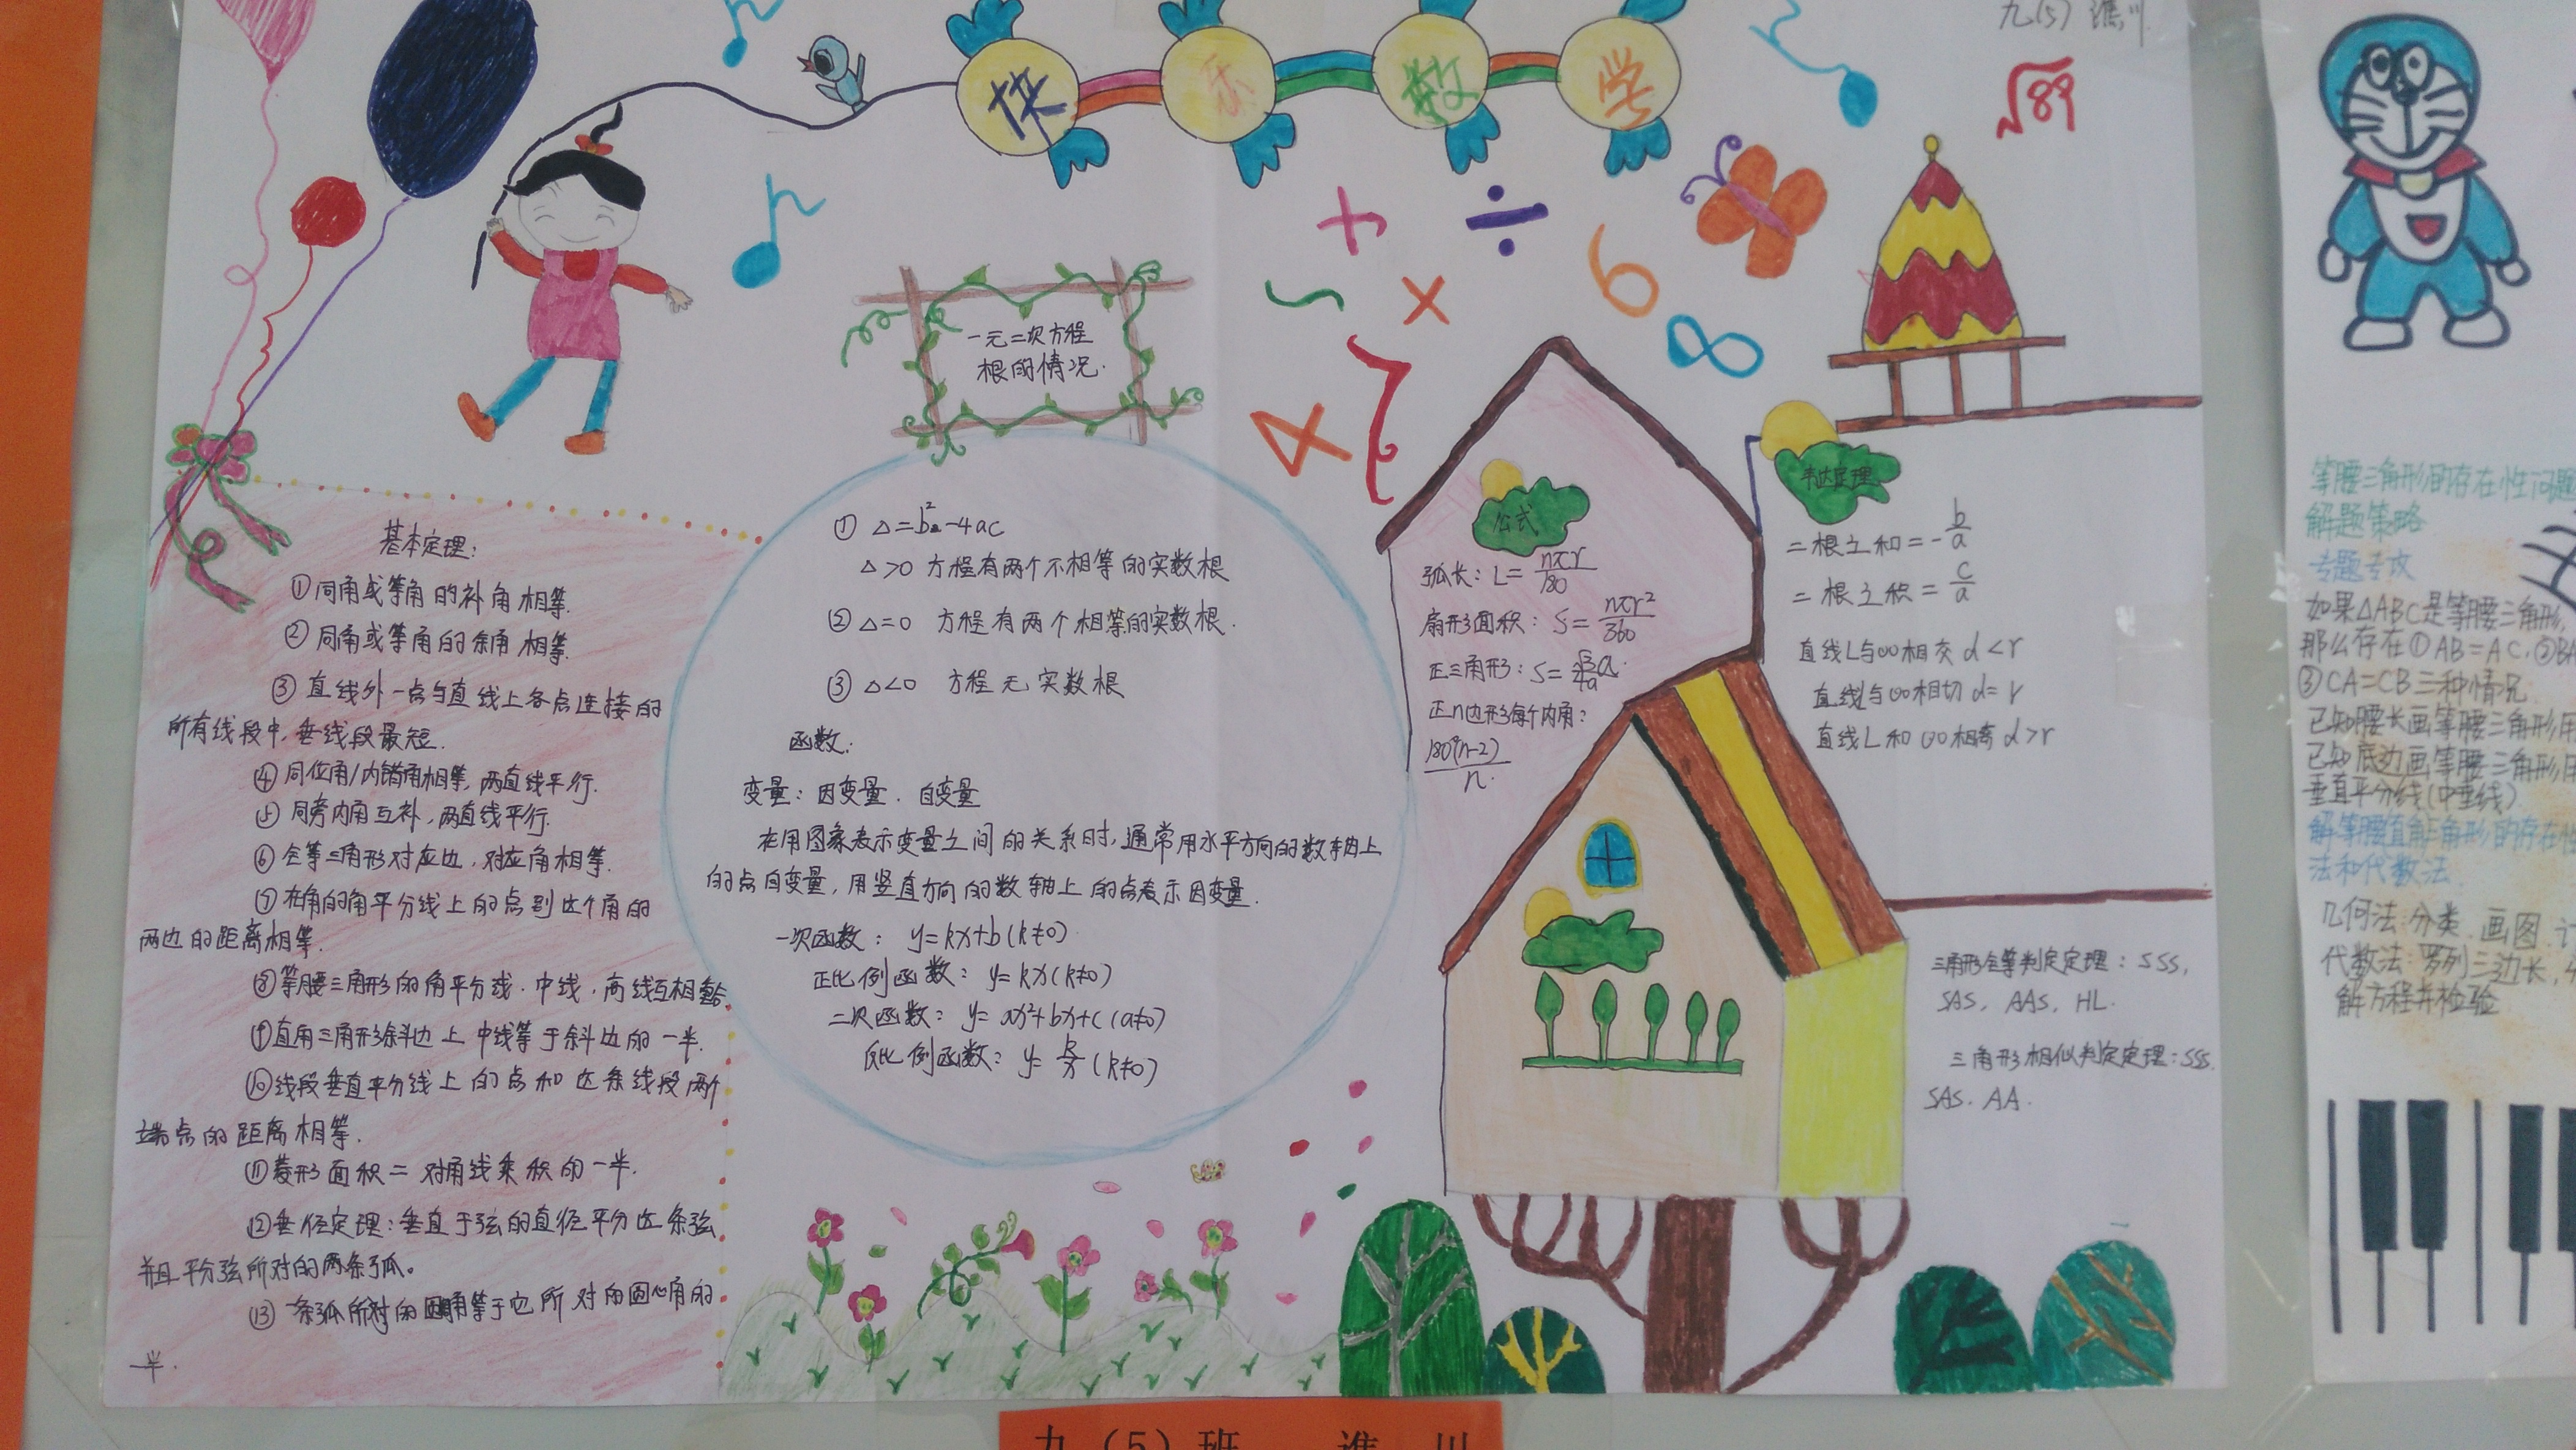 九(5) 谯川
√89
快乐数学
一元二次方程
根的情况.
基本定理:
①同角或等角的补角相等.
②同角或等角的余角相等.
③直线外一点与直线上各点连接的
所有线段中,垂线段最短.
④同位角/内错角相等,两直线平行.
⑤同旁内角互补,两直线平行.
⑥全等三角形对应边,对应角相等.
⑦在角的角平分线上的点到这个角的
两边的距离相等.
⑧等腰三角形的角平分线.中线.高线互相重合.
⑨直角三角形斜边上中线等于斜边的一半.
⑩线段垂直平分线上的点和这条线段两个
端点的距离相等.
⑪菱形面积=对角线乘积的一半.
⑫垂径定理:垂直于弦的直径平分这条弦
并且平分弦所对的两条弧。
⑬一条弧所对的圆周角等于它所对的圆心角的
一半.
① △=b²-4ac
△>0 方程有两个不相等的实数根
② △=0 方程有两个相等的实数根.
③ △<0 方程无实数根
函数:
变量:因变量.自变量
在用图象表示变量之间的关系时,通常用水平方向的数轴上
的点自变量,用竖直方向的数轴上的点表示因变量.
一次函数: y=kx+b(k≠0)
正比例函数: y=kx(k≠0)
二次函数: y=ax²+bx+c(a≠0)
反比例函数: y=k/x(k≠0)
+ ÷
~ × 6
8
4 7
公式
弧长:L=nπr/180
扇形面积:S=nπr²/360
正三角形:S=
正n边形每个内角:
180°(n-2)/n.
韦达定理
二根之和=-b/a
二根之积=c/a
直线L与⊙O相交 d<r
直线与⊙O相切 d=r
直线L和⊙O相离 d>r
三角形全等判定定理:SSS,
SAS, AAS, HL.
三角形相似判定定理:SSS.
SAS. AA.
九(5)班 谯川
等腰三角形的存在性问题
解题策略
专题专攻
如果△ABC是等腰三角形,
那么存在①AB=AC,②BA
③CA=CB三种情况
已知腰长画等腰三角形用
已知底边画等腰三角形用
垂直平分线(中垂线)
解等腰直角三角形的存在性
法和代数法
几何法:分类.画图.计
代数法:罗列三边长,
解方程并检验